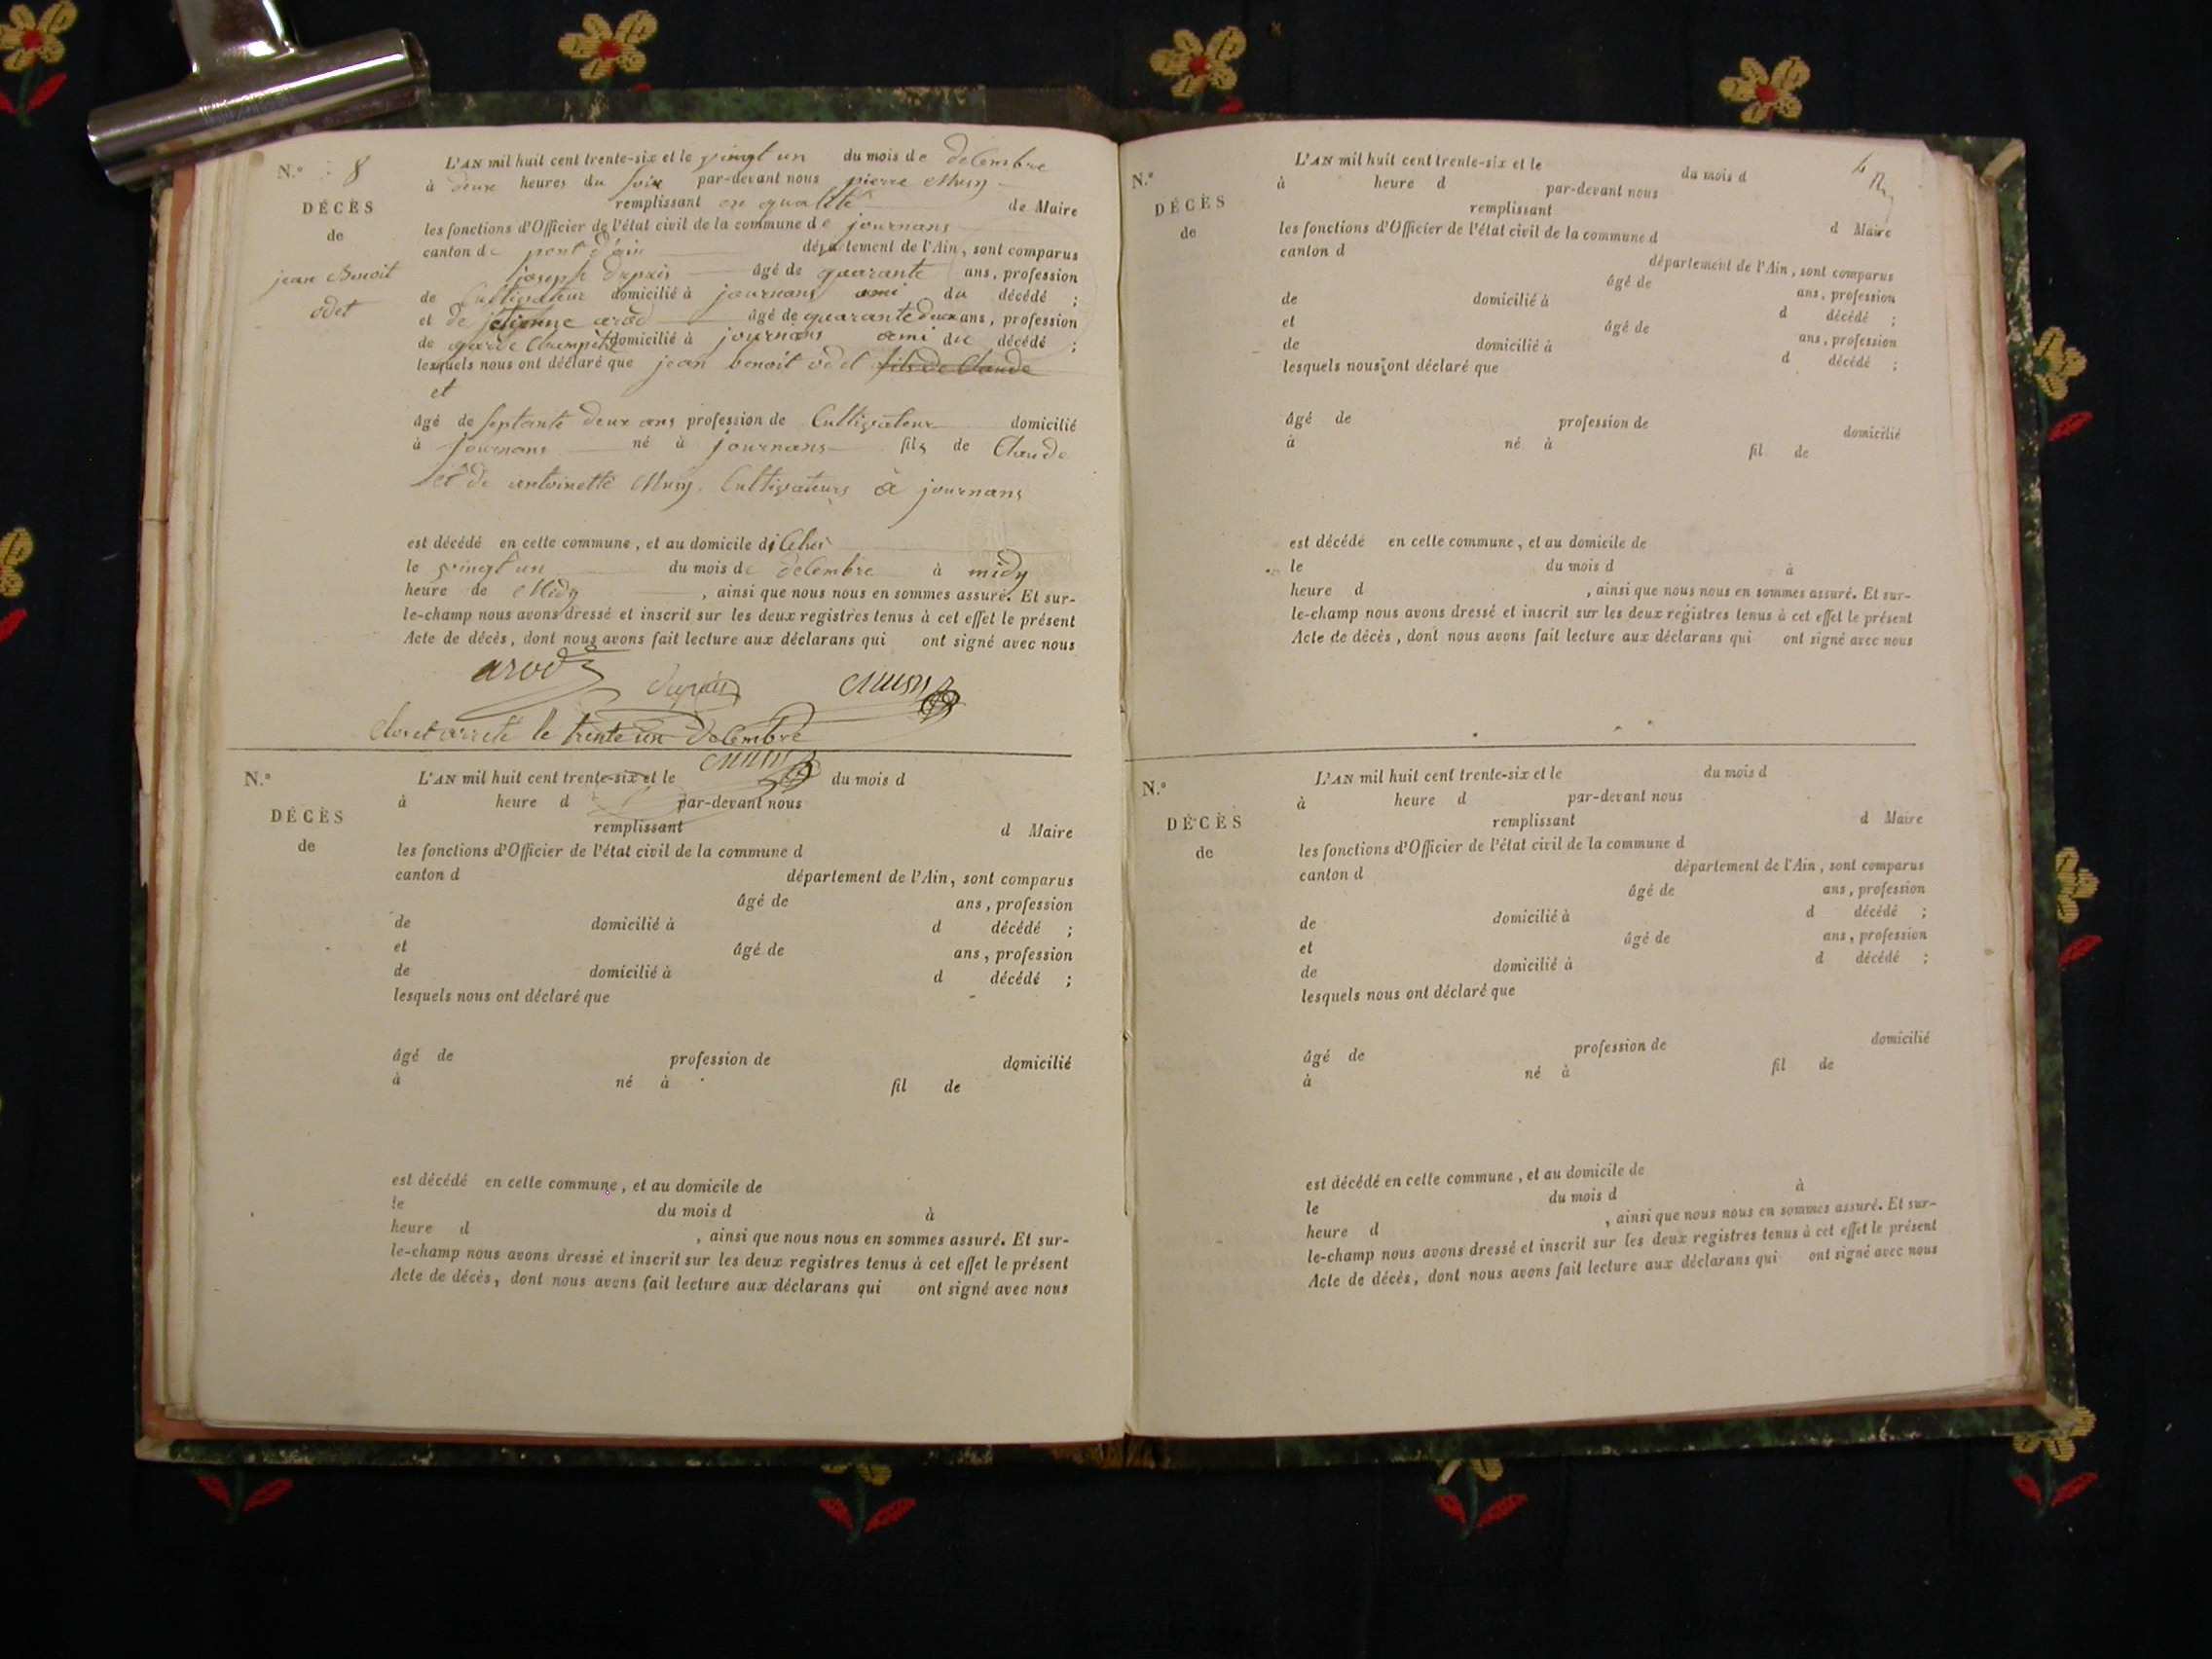 N.° 8
DÉCÈS
de
jean Benoit
odet
L'AN mil huit cent trente-six et le vingt un du mois de decembre
à deux heures du soir par-devant nous pierre Musy
remplissant en qualité de Maire
les fonctions d'Officier de l'état civil de la commune de journans
canton de pont d'ain département de l'Ain, sont comparus
joseph dupuis âgé de quarante ans, profession
de Cultivateur domicilié à journans ami du décédé ;
et de etienne arod âgé de quarante deux ans, profession
de garde Champêtre domicilié à journans ami du décédé ;
lesquels nous ont déclaré que jean benoit odet fils de Claude
et
âgé de septante deux ans profession de Cultivateur domicilié
à journans né à journans fils de Claude
et de antoinette Musy. Cultivateurs à journans
est décédé en cette commune, et au domicile de
le vingt un du mois de decembre à midy
heure de Midy, ainsi que nous nous en sommes assuré. Et sur-
le-champ nous avons dressé et inscrit sur les deux registres tenus à cet effet le présent
Acte de décès, dont nous avons fait lecture aux déclarans qui ont signé avec nous
arod dupuis Musy
clos et arreté le trente un decembre
Musy
N.°
DÉCÈS
de
L'AN mil huit cent trente-six et le du mois d
à heure d par-devant nous
remplissant d Maire
les fonctions d'Officier de l'état civil de la commune d
canton d département de l'Ain, sont comparus
âgé de ans, profession
de domicilié à d décédé ;
et âgé de ans, profession
de domicilié à d décédé ;
lesquels nous ont déclaré que
âgé de profession de domicilié
à né à fil de
est décédé en cette commune, et au domicile de
le du mois d à
heure d , ainsi que nous nous en sommes assuré. Et sur-
le-champ nous avons dressé et inscrit sur les deux registres tenus à cet effet le présent
Acte de décès, dont nous avons fait lecture aux déclarans qui ont signé avec nous
N.°
DÉCÈS
de
L'AN mil huit cent trente-six et le du mois d
à heure d par-devant nous
remplissant d Maire
les fonctions d'Officier de l'état civil de la commune d
canton d département de l'Ain, sont comparus
âgé de ans, profession
de domicilié à d décédé ;
et âgé de ans, profession
de domicilié à d décédé ;
lesquels nous ont déclaré que
âgé de profession de domicilié
à né à fil de
est décédé en cette commune, et au domicile de
le du mois d à
heure d , ainsi que nous nous en sommes assuré. Et sur-
le-champ nous avons dressé et inscrit sur les deux registres tenus à cet effet le présent
Acte de décès, dont nous avons fait lecture aux déclarans qui ont signé avec nous
N.°
DÉCÈS
de
L'AN mil huit cent trente-six et le du mois d
à heure d par-devant nous
remplissant d Maire
les fonctions d'Officier de l'état civil de la commune d
canton d département de l'Ain, sont comparus
âgé de ans, profession
de domicilié à d décédé ;
et âgé de ans, profession
de domicilié à d décédé ;
lesquels nous ont déclaré que
âgé de profession de domicilié
à né à fil de
est décédé en cette commune, et au domicile de
le du mois d à
heure d , ainsi que nous nous en sommes assuré. Et sur-
le-champ nous avons dressé et inscrit sur les deux registres tenus à cet effet le présent
Acte de décès, dont nous avons fait lecture aux déclarans qui ont signé avec nous